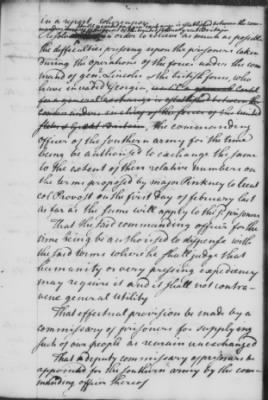 in a report, whereupon
Resolved
in order to relieve as much as possible
the difficulties pressing upon the prisoners taken
during the operations of the forces under the com
mand of genl. Lincoln & the british force, who
have invaded Georgia, until a general Cartel
for a general exchange is established between the
commanders in chief of the forces of the United
States & Great Britain, the commanding
officer of the southern army for the time
being be authorised to exchange the same
to the extent of their relative numbers on
the terms proposed by major Pinkney to lieut
col Prevost on the first day of february last
as far as the same will apply to the sd. prisoners
That the said commanding officer for the
time being be authorised to dispense with
the said terms where he shall judge that
humanity or very pressing expediency
may require it and it shall not contra
vene general utility
That effectual provision be made by a
commissary of prisoners for supplying
such of our people as remain unexchanged
That a deputy commissary of prisoners be
appointed for the southern army by the com
manding officer thereof